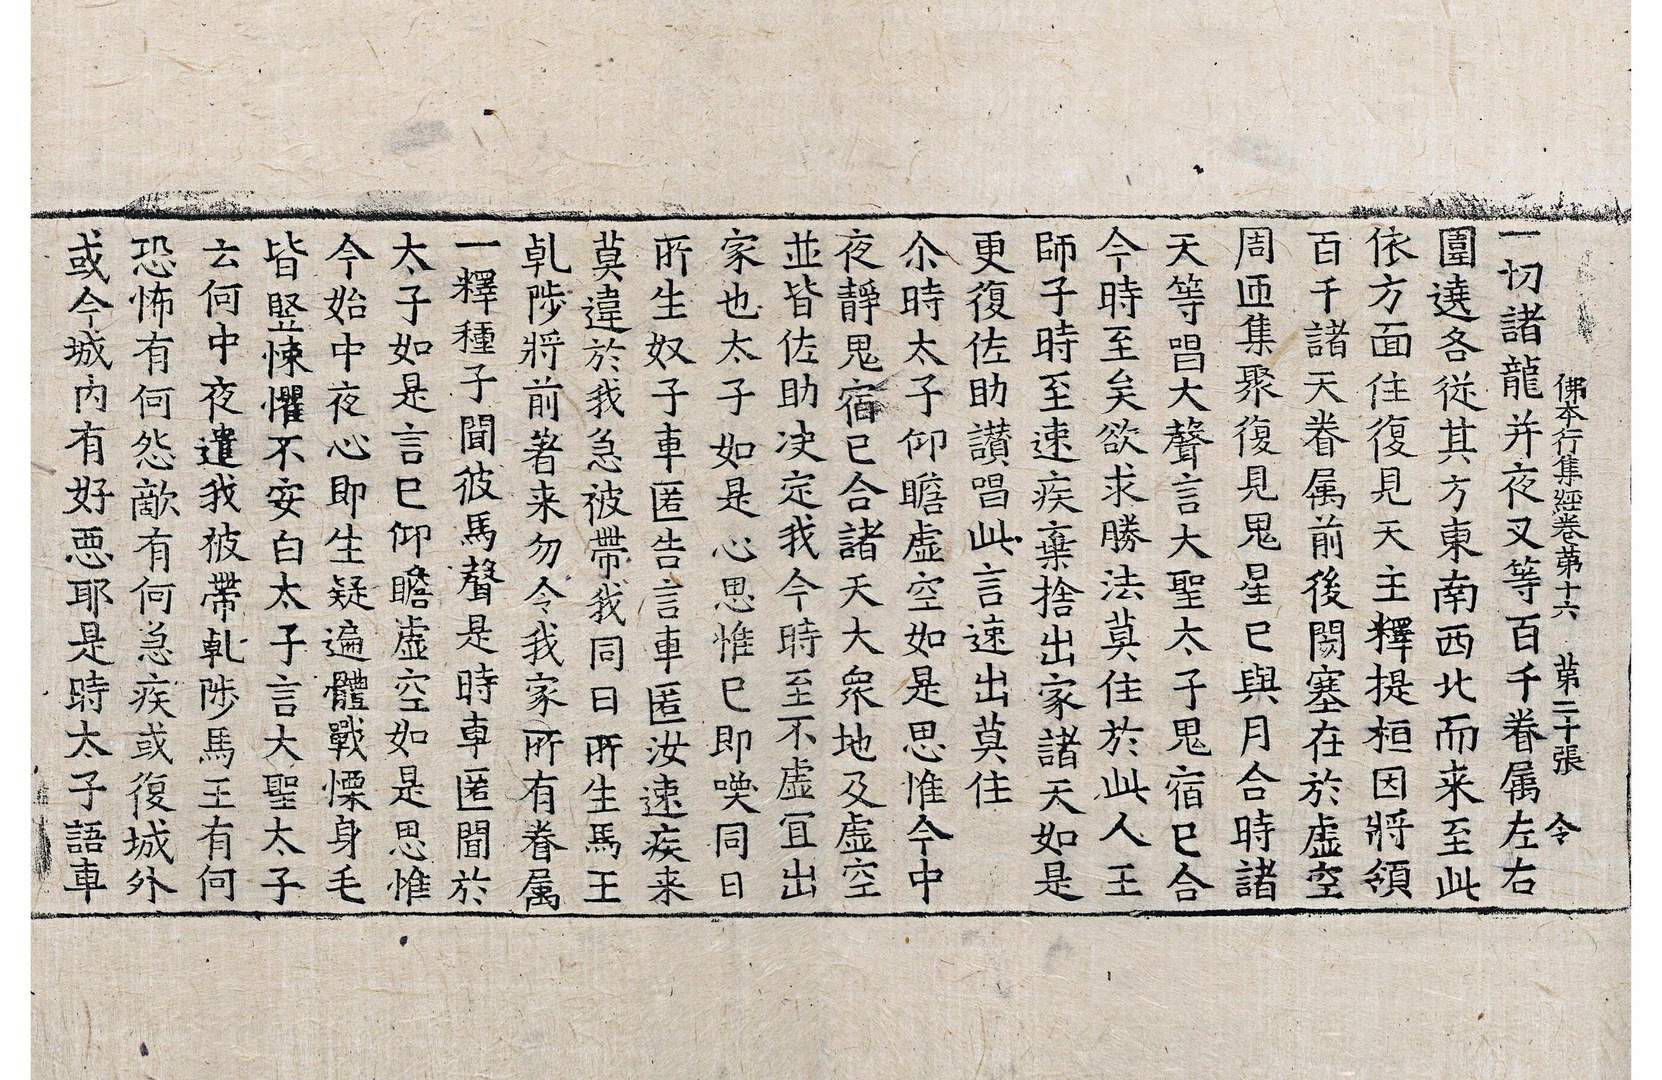 佛本行集經卷苐十六　苐二十張　令
一切諸龍并夜叉等百千眷属左右
圍遶各從其方東南西北而来至此
依方面住復見天主釋提桓因將領
百千諸天眷属前後閡塞在於虛空
周匝集聚復見鬼星已與月合時諸
天等唱大聲言大聖太子鬼宿已合
今時至矣欲求勝法莫住於此人王
師子時至速疾棄捨出家諸天如是
更復佐助讃唱此言速出莫住
尒時太子仰瞻虛空如是思惟今中
夜靜鬼宿已合諸天大衆地及虛空
並皆佐助决定我今時至不虛冝出
家也太子如是心思惟已即喚同日
所生奴子車匿告言車匿汝速疾来
莫違於我急被帶我同日所生馬王
乹陟將前著来勿令我家所有眷属
一釋種子聞彼馬聲是時車匿聞於
太子如是言已仰瞻虛空如是思惟
今始中夜心即生疑遍體戰慄身毛
皆竪悚懼不安白太子言大聖太子
云何中夜遣我被帶乹陟馬王有何
恐怖有何怨敵有何急疾或復城外
或今城內有好悪耶是時太子語車